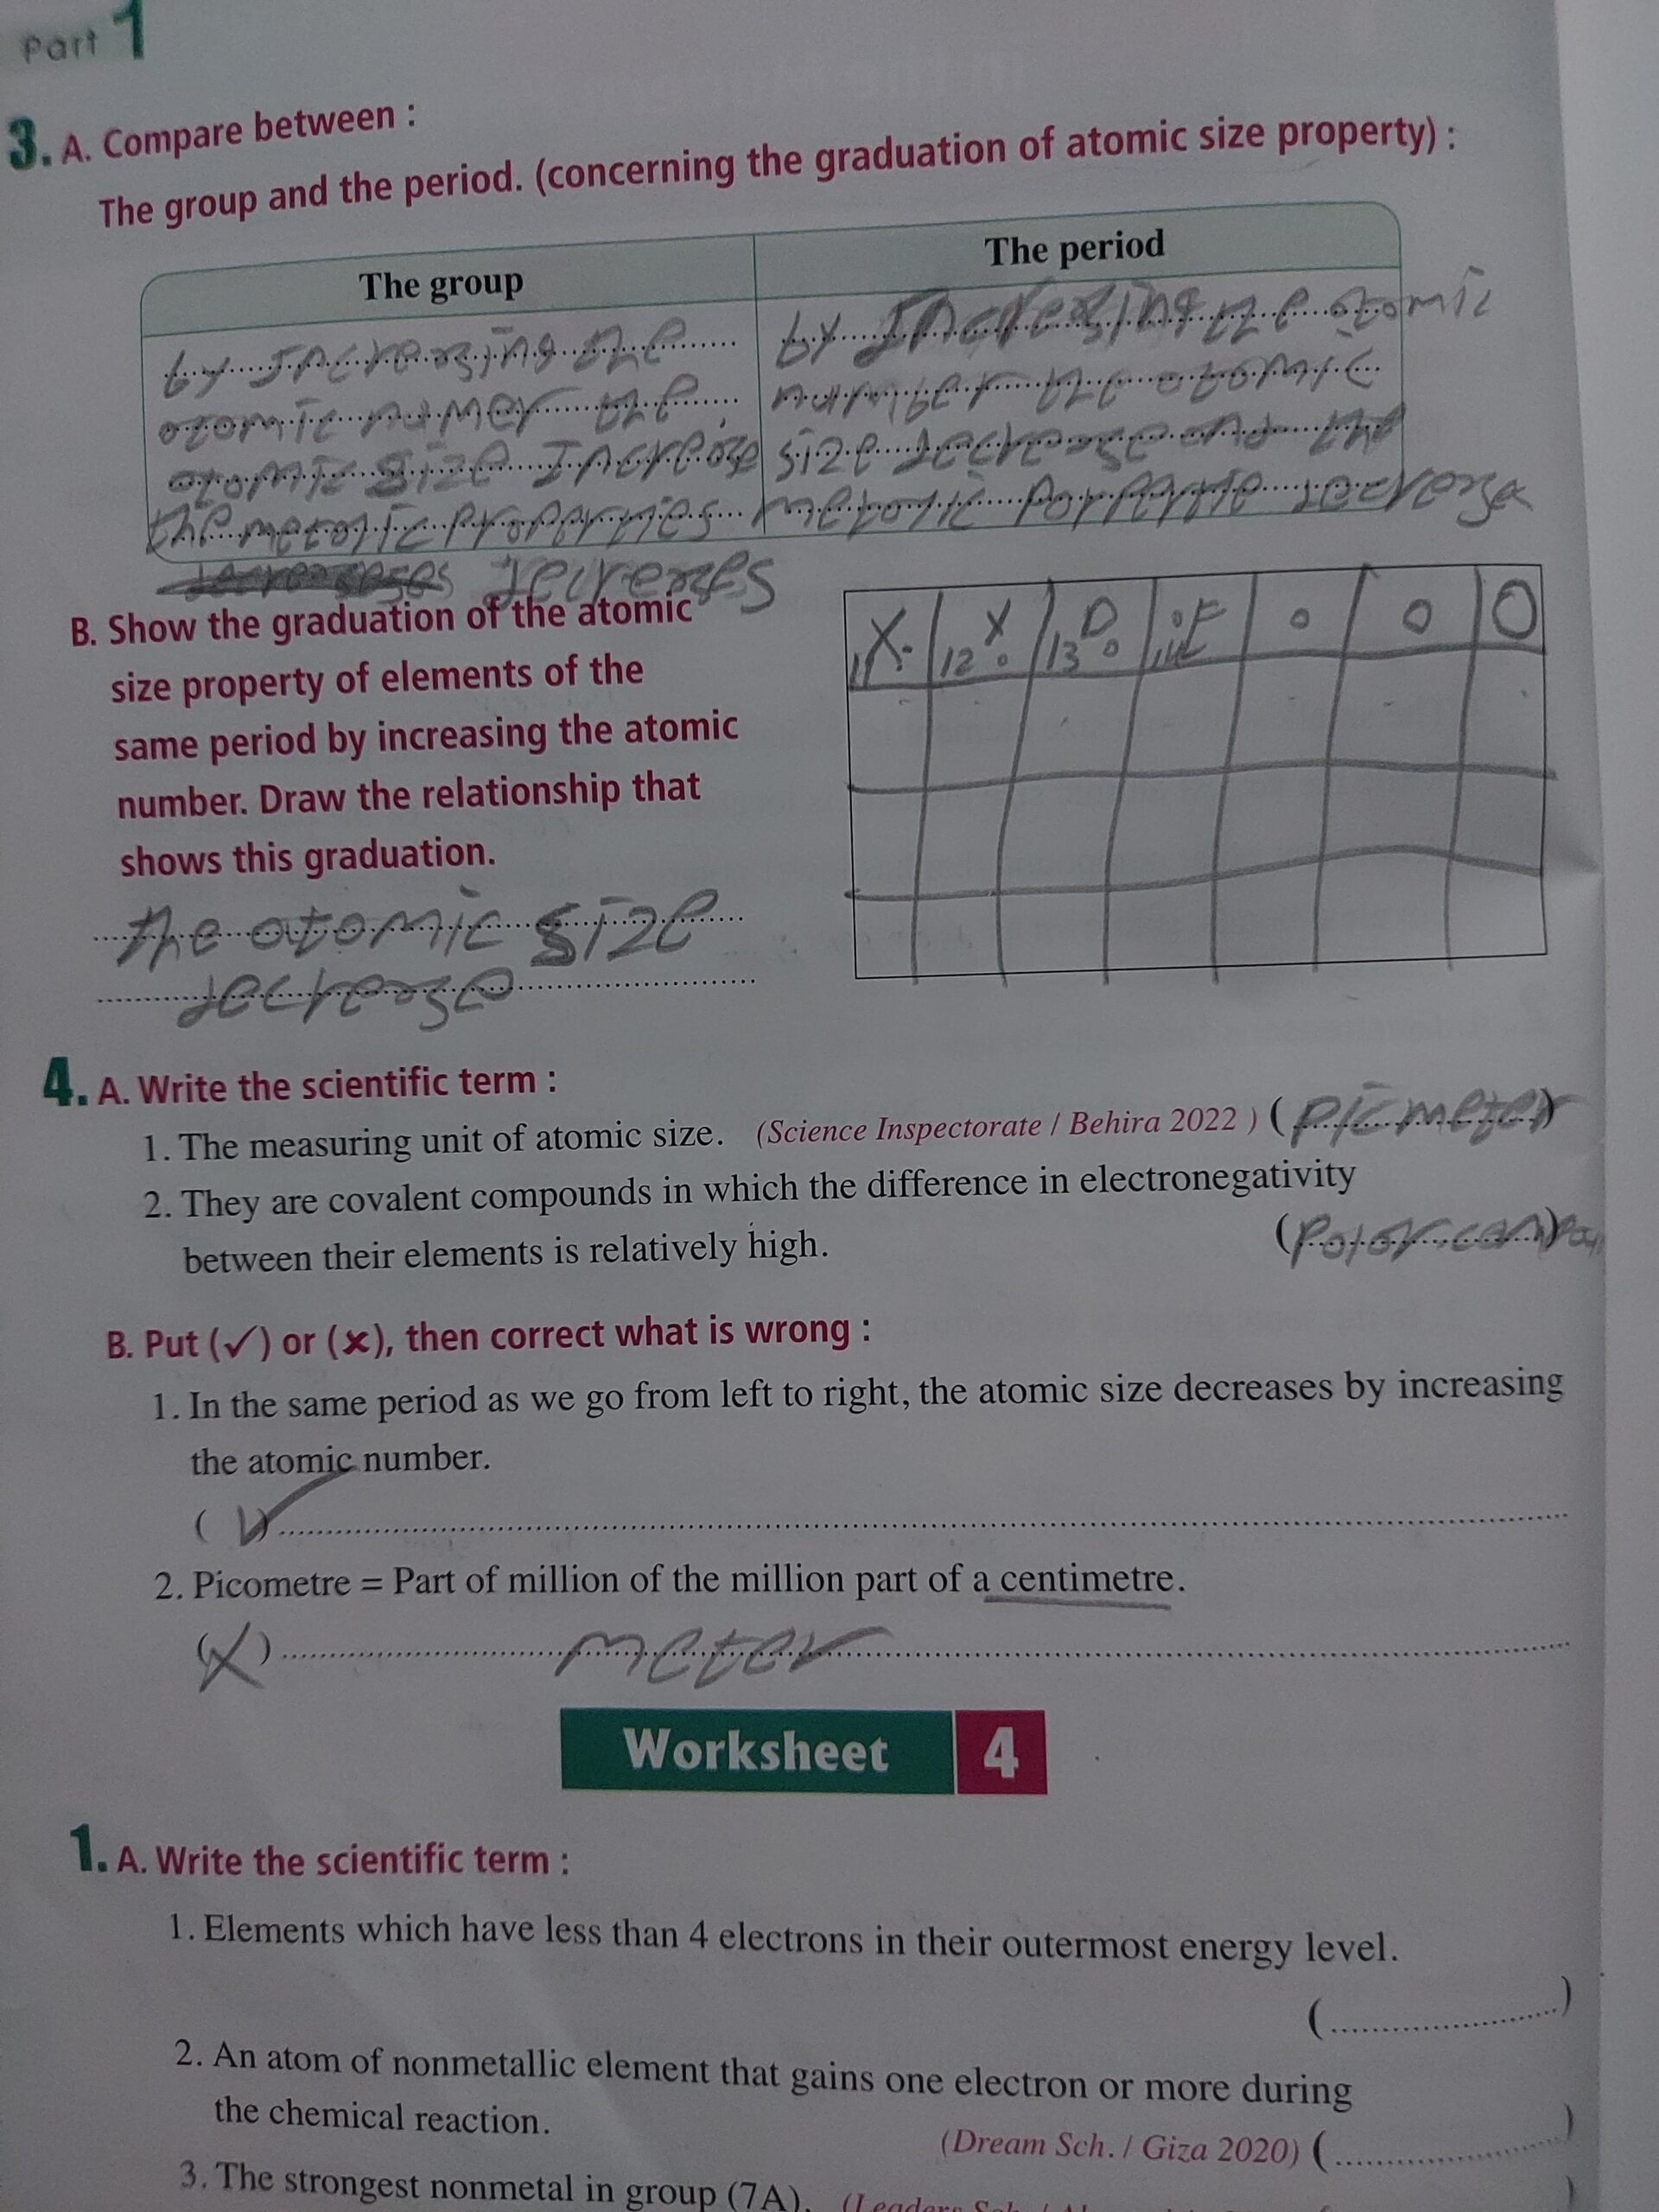 Part 1
3. A. Compare between :
The group and the period. (concerning the graduation of atomic size property) :
The group
The period
by Increasing the
atomic numer the
atomic size Increase
the metalic properties
decreases
by Increasing the atomic
number the atomic
size decrease and the
metalic decrease
B. Show the graduation of the atomic
size property of elements of the
same period by increasing the atomic
number. Draw the relationship that
shows this graduation.
the atomic size
decrease
11 X 12 X 13 D
4. A. Write the scientific term :
1. The measuring unit of atomic size. (Science Inspectorate / Behira 2022 ) (picmeter)
2. They are covalent compounds in which the difference in electronegativity
between their elements is relatively high. (Polar)
B. Put (✓) or (✗), then correct what is wrong :
1. In the same period as we go from left to right, the atomic size decreases by increasing
the atomic number.
(✓)
2. Picometre = Part of million of the million part of a centimetre.
(X) meter
Worksheet 4
1. A. Write the scientific term :
1. Elements which have less than 4 electrons in their outermost energy level.
(....................)
2. An atom of nonmetallic element that gains one electron or more during
the chemical reaction. (Dream Sch. / Giza 2020) (....................)
3. The strongest nonmetal in group (7A). (Leaders Sch. /